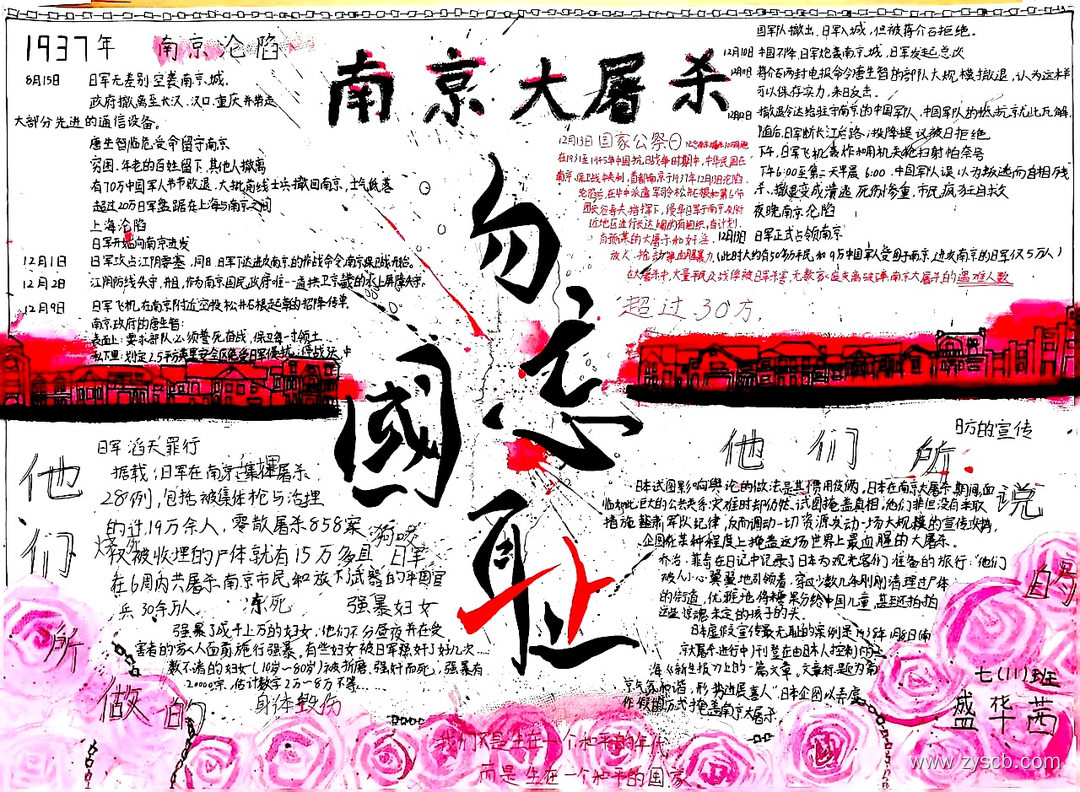 1937年 南京沦陷
8月15日 日军无差别空袭南京城.
政府撤离至长沙、汉口、重庆并带走
大部分先进的通信设备。
唐生智临危受命留守南京
穷困、年老的百姓留下,其他人撤离
有70万中国军人节节败退、大批前线士兵撤回南京,士气低落
超过20万日军盘踞在上海与南京之间
上海沦陷
日军开始向南京进发
12月1日 日军攻占江阴要塞,同日日军下达进攻南京的作战命令,南京保卫战开始。
12月2日 江阴防线失守,
12月9日 日军飞机在南京附近空投松井石根起草的招降传单
南京政府的唐生智:
表面上:要求部队必须誓死奋战,保卫每一寸领土
南京大屠杀
勿忘
國耻
12月13日 国家公祭日
在1931至1945年中国抗日战争时期中,中华民国在
近地区进行长达6周的有组织、有计划、
有预谋的大屠杀和奸淫
放火、抢劫等血腥暴力
超过30万.
国军队撤出,日军入城,但被蒋介石拒绝。
12月10日 中国不降,日军炮袭南京城,日军发起总攻
蒋介石两封电报命令唐生智的部队大规模撤退,认为这样
可以保存实力,来日反击.
12月12日 撤退令达给驻守南京的中国军队,中国军队的抵抗就此瓦解
随后日军断长江后路
下午,日军飞机轰炸和用机关炮扫射帕奈号
下午6:00至第二天早晨6:00,中国军队误以为叛逃而自相残
杀,撤退变成溃逃,死伤惨重,市民疯狂自救
夜晚南京沦陷
12月13日 日军正式占领南京
(此时大约有50万市民,和9万中国军人受困于南京,进攻南京的日军仅5万人)
遇难人数
他们所做的
日军滔天罪行
据载,日军在南京集体屠杀
28例,包括被集体枪与活埋
的计19万余人,零散屠杀858案
仅被收埋的尸体就有15万多具 日军
在6周内共屠杀南京市民和放下武器的中国官
兵30余万人.
烧死
狗咬
冻死 强暴妇女
强暴了成千上万的妇女,他们不分昼夜并在受
害者的家人面前施行强暴,有些妇女被日军强奸了好几次....
数不清的妇女(10岁~80岁)被折磨、强奸而死,强暴有
20000宗,估计数字2万~8万不等...
身体致伤
他们所说
日方的宣传
日本试图影响舆论的做法是其惯用伎俩,日本在南京大屠杀期间,面
临如此巨大的公共关系灾难时却仍然试图掩盖真相,他们非但没有采取
措施整肃军队纪律,反而调动一切资源发动一场大规模的宣传攻势,
企图在某种程度上掩盖这场世界上最血腥的大屠杀.
乔治·菲奇在日记中记录了日本为观光客们准备的旅行:"他们
被人小心翼翼地引领着,穿过少数几条刚刚清理过尸体
的街道,优雅地将糖果分给中国儿童,甚至还拍拍
这些惊魂未定的孩子的头
日本虚假宣传最无耻的案例是1938年1月8日南
京大屠杀进行中,刊登在由日本人控制的上
海《新申报》上的一篇文章,文章标题为南
京气氛和谐,形势进展喜人"日本企图以弄虚
作假的方式掩盖南京大屠杀.
七(11)班
盛华茜
我们不是生在一个和平的年代
而是生在一个和平的国家
www.zyscb.com